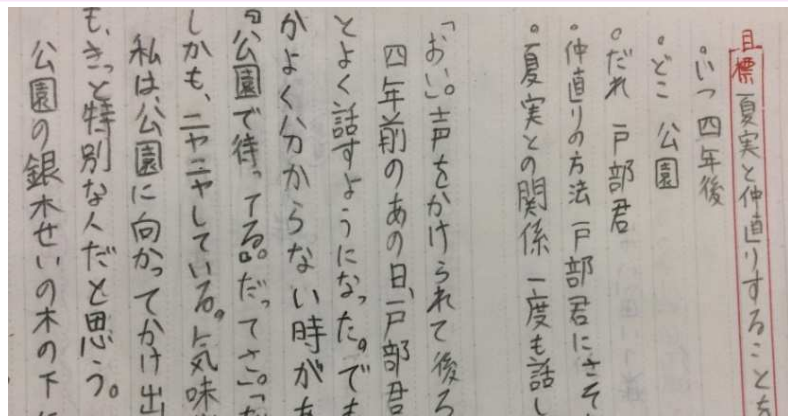 目標 夏実と仲直りすることを
。いつ 四年後
。どこ 公園
。だれ 戸部君
。仲直りの方法 戸部君にさそ
。夏実との関係 一度も話し
「おい。」声をかけられて後ろ
四年前のあの日、戸部君
とよく話すようになった。でも
かよく分からない時があ
『公園で待ってる。』だってさ。」
しかも、ニヤニヤしている。気味
私は、公園に向かってかけ出
も、きっと特別な人だと思う。
公園の銀木せいの木の下に